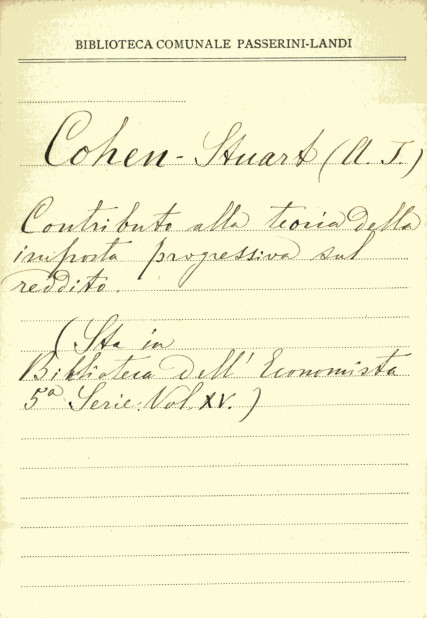 BIBLIOTECA COMUNALE PASSERINI-LANDI
Cohen-Stuart (A. J.)
Contributo alla teoria della
imposta progressiva sul
reddito.
(Sta in
Biblioteca dell' Economista
5a Serie. Vol. XV.)